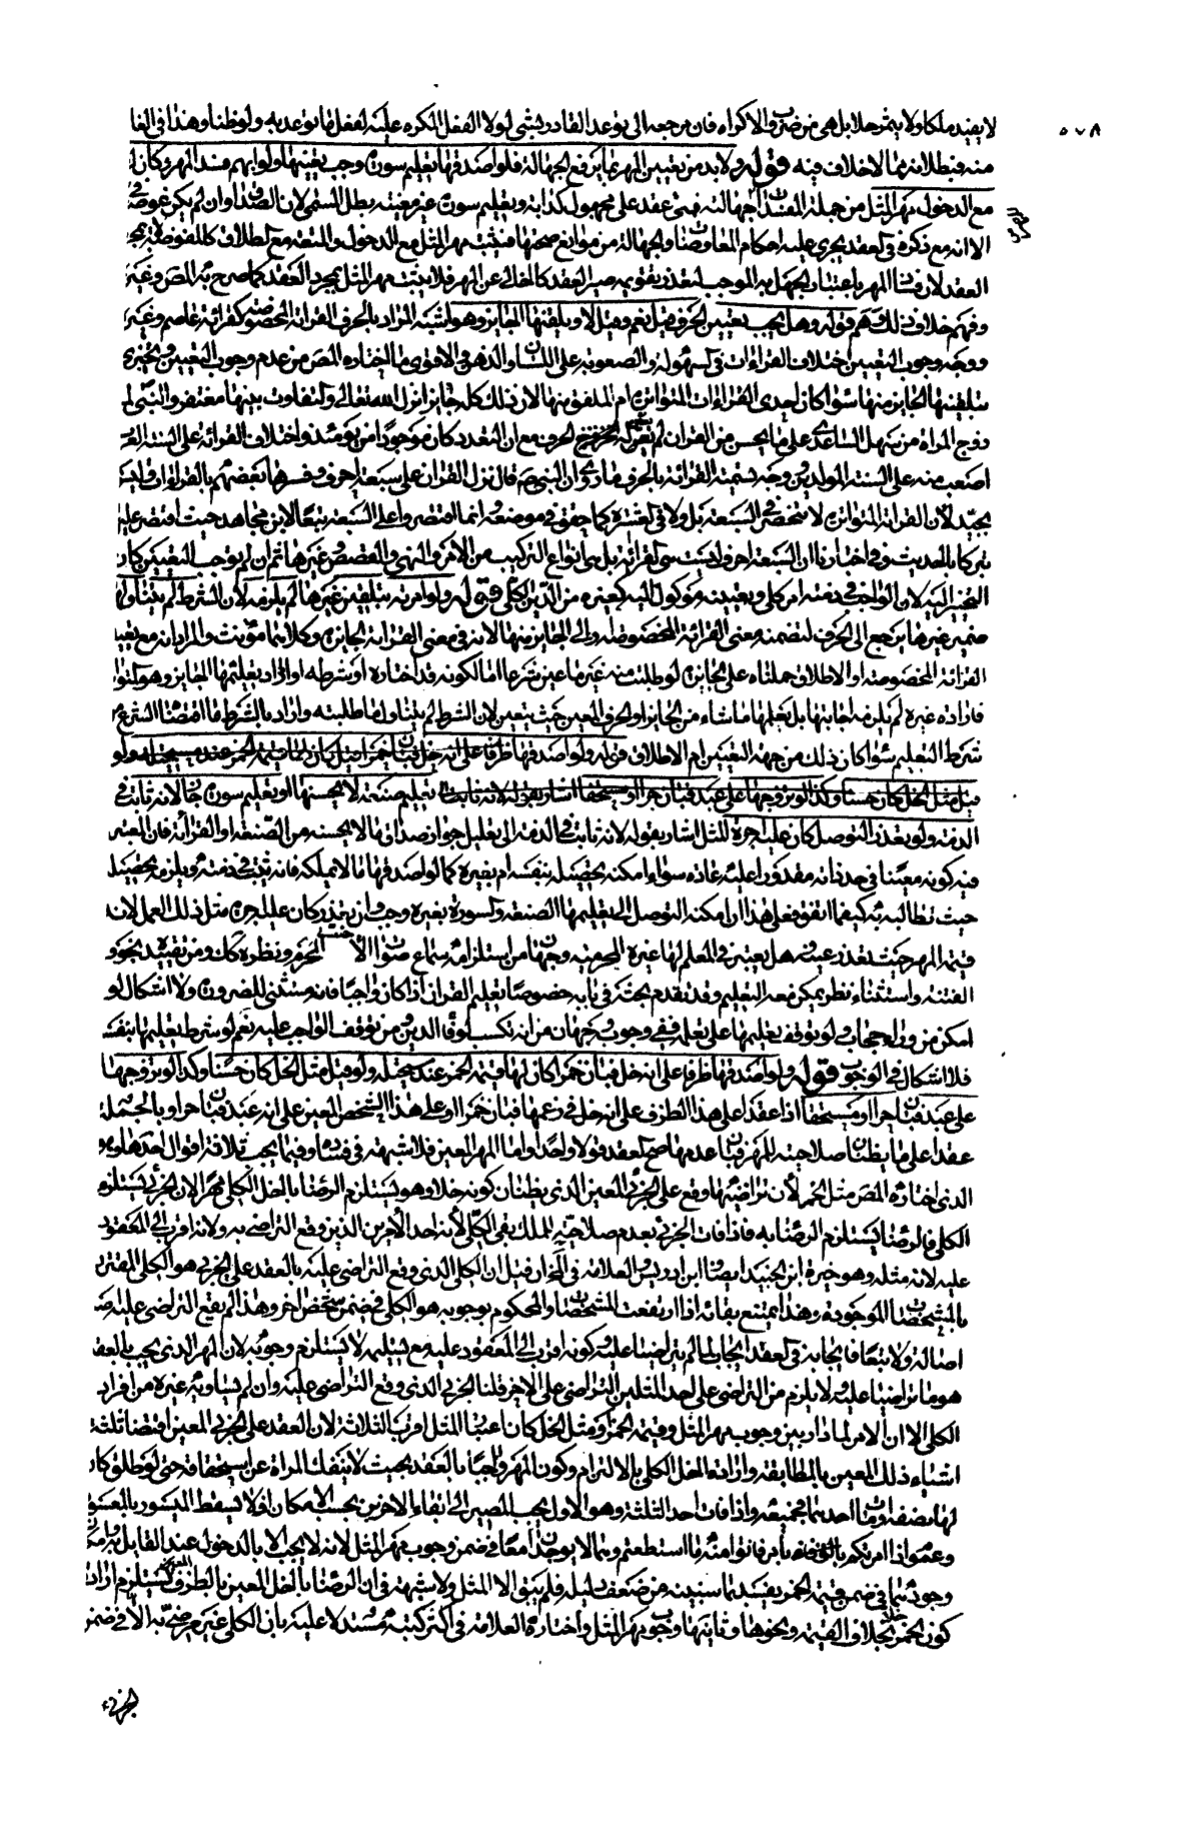 ٥٧٨
لا يفيد ملكا ولا يثمر حلا بل هي من ضروب الاكراه فان مرجعه الى توعد القادر بشئ لولا الفعل المكره عليه لفعل ما توعد به ولو ظنا وهذا في
منه فبطلانه مما لا خلاف فيه قوله ولا بد من تعيين المهر بما يرفع الجهالة فلو اصدقها تعليم سورة وجب تعيينها ولو ابهم فسد المهر وكان لها
مع الدخول مهر المثل من جملة المفسدات جهالته فمتى عقد على مجهول كدابة وتعليم سورة غير معينة بطل المسمى لان الصداق وان لم يكن عوضا في
الا انه مع ذكره في العقد يجري عليه احكام المعاوضات والجهالة من موانع صحتها فيثبت مهر المثل مع الدخول والمتعة مع الطلاق كالمفوضة
العقد لان فساد المهر باعتبار الجهل به الموجب لتعذر تقويمه صير العقد كالخالي عن المهر فلا يثبت مهر المثل بمجرد العقد كما صرح به المص وغيره
قوله وهل يجب تعيين الحرف قيل نعم وقيل لا ويلقنها الجايز وهو اشبه المراد بالحرف القرائة المخصوصة كقرائة عاصم وغيره
ووجه وجوب التعيين اختلاف القراءات في السهولة والصعوبة على اللسان والذهن والاقوى ما اختاره المص من عدم وجوب التعيين
بتلقينها الجايز منها سواء كان احدى القراءات المتواترة ام الملفق منها لان ذلك كله جايز انزل الله تعالى والتفاوت بينها مغتفر والنبي لم
زوج المراة من سهل الساعدي على ما يحسن من القران لم يعين له الحرف مع ان التعدد كان موجودا من يومئذ واختلاف القرائة على السنة العرب
اصعب منه على السنة المولدين ووجه تسمية القرائة بالحرف ما روى ان النبي ص قال نزل القران على سبعة احرف وفسرها بعضهم بالقراءات وليس
بجيد لان القرائة المتواترة لا تنحصر في السبعة بل ولا في العشرة كما حقق في موضعه وانما اقتصروا على السبعة تبعا لابن مجاهد حيث اقتصر عليها
تبركا بالحديث وفي اخبارنا ان السبعة احرف ليست هي القرائة بل هي انواع التركيب من الامر والنهي والقصص وغيرها ثم ان لم نوجب التعيين كان
التخيير اليه لان الواجب في ذمته امر كلي وتعيينه موكول اليه كغيره من الدين الكلي قوله ولو امرته بتلقين غيرها لم يلزمه لان الشرط لم يتناولها
ضمير غيرها يرجع الى الحرف لتضمنه معنى القرائة المخصوصة او الى الجايز منها لانه في معنى القرائة الجايزة وكلاهما مؤنث والمراد انه مع تعيين
القرائة المخصوصة او الاطلاق وحملناه على الجايز لو طلبت منه غير ما عين شرعا اما لكونه قد اختاره او شرطه او اراد تعليمها الجايز وهو المتواتر
فارادت غيره لم يلزمه اجابتها بل يعلمها ما شاء من الجايز او الحرف المعين حيث يتعين لان الشرط لم يتناول ما طلبته واراد بالشرط ما اقتضاه الشرع
شرط التعليم سواء كان ذلك من جهة التعيين ام الاطلاق قوله ولو اصدقها ظرفا على انه خل فبان خمرا قيل كان لها قيمة الخمر عند مستحله ولو
قيل مثل الخل كان حسنا وكذا لو تزوجها على عبد فبان حرا او مستحقا اشار بقوله لانه ثابت تعليم صنعة لا يحسنها او تعليم سورة جاز لانه ثابت في
الذمة ولو تعذر التوصل كان عليه اجرة المثل اشار بقوله لانه ثابت في الذمة الى تعليل جواز صداق ما لا يحسنه من الصنعة او القرائة فان المعتبر
فيه كونه معينا في حد ذاته مقدورا عليه عادة سواء امكنه تحصيله بنفسه ام بغيره كما لو اصدقها ما لا يملكه فانه يثبت في ذمته ويلزمه تحصيله
حيث تطالبه به كيفما اتفق فعلى هذا ان امكنه التوصل الى تعليمها الصنعة والسورة بغيره وجب وان تعذر كان عليه اجرة مثل ذلك العمل لانه
قيمة المهر حيث تعذر عينه وهل يعتبر في المعلم لها غيره المحرمية وجهان من استلزامه سماع صوت الاجنبية المحرم ونظره كك ومن تقييده بخوف
الفتنة واستثناء نظر يمكن معه التعليم وقد تقدم بحثه في بابه خصوصا تعليم القران اذا كان واجبا فانه مستثنى للضرورة ولا اشكال لو
امكن من وراء حجاب ولو توقف تعليمها على تعلمه ففي وجوبه وجهان من انه تكسب لوفاء الدين ومن توقف الواجب عليه نعم لو شرط تعليمها بنفسه
فلا اشكال في الوجوب قوله ولو اصدقها ظرفا على انه خل فبان خمرا كان لها قيمة الخمر عند مستحله ولو قيل مثل الخل كان حسنا وكذا لو تزوجها
على عبد فبان حرا او مستحقا اذا عقدا على هذا الظرف على انه خل في زعمهما فبان خمرا او على هذا الشخص المعين على انه عبد فبان حرا وبالجملة
عقدا على ما يظنان صلاحيته للمهر فبان عدمها صح العقد قولا واحدا واما المهر المعين فلا شبهة في فساده وفيما يجب ثلاثة اقوال احدها وهو
الذي اختاره المص مثل الخمر لان تراضيهما وقع على الجزئي المعين الذي يظنان كونه خلا وهو يستلزم الرضا بالخل الكلي مهرا لان الجزئي يستلزم
الكلي فالرضا به يستلزم الرضا به فاذا فات الجزئي بعدم صلاحيته للملك بقي الكلي لانه احد الامرين الذين وقع التراضي به ولانه اقرب الى المعقود
عليه لانه مثله وهو خيرة ابن الجنيد ايضا وابن ادريس والعلامة في الخ فان قيل ان الكلي الذي وقع التراضي عليه بالعقد على الجزئي هو الكلي المقترن
بالمشخصات الموجودة وهذا يمتنع بقائه اذا ارتفعت المشخصات والمحكوم بوجوبه هو الكلي في ضمن شخص اخر وهذا لم يقع التراضي عليه
اصالة ولا تبعا فايجابه في العقد ايجاب لما لم يتراضيا عليه وكونه اقرب الى المعقود عليه مع تسليمه لا يستلزم وجوبه لان المهر الذي يجب بالعقد
هو ما تراضيا عليه ولا يلزم من التراضي على احد المثلين التراضي على الاخر قلنا الجزئي الذي وقع التراضي عليه وان لم يساويه غيره من افراد
الكلي الا ان الامر لما دار بين وجوب مهر المثل وقيمة الخمر ومثل الخل كان اعتبار المثل اقرب الثلاثة لان العقد على الجزئي المعين اقتضى ثلثة
اشياء ذلك المعين بالمطابقة وارادة الخل الكلي بالالتزام وكون المهر واجبا بالعقد بحيث لا ينفك المراة عن استحقاقه حتى لو طلق كان
لها نصفه او مات احدهما فجميعه واذا فات احد الثلثة وهو الاول يجب المصير الى ابقاء الاخرين بحسب الامكان اذ لا يسقط الميسور بالمعسور
وعموم اذا امرتكم بامر فاتوا منه ما استطعتم وهما لا يوجدان معا في ضمن وجوب مهر المثل لانه لا يجب الا بالدخول عند القايل به
وجودهما في ضمن قيمة الخمر يفسد بما سنبينه من ضعف دليله فلم يبق الا المثل ولا شبهة في ان الرضا بالخل المعين بالظرف يستلزم ارادة
كون الخمر خلا بخلاف القيمة ونحوها وثانيها وجوب مهر المثل واختاره العلامة في اكثر كتبه مستدلا عليه بان الكلي غير مرضي به الا في ضمن
الجزئي